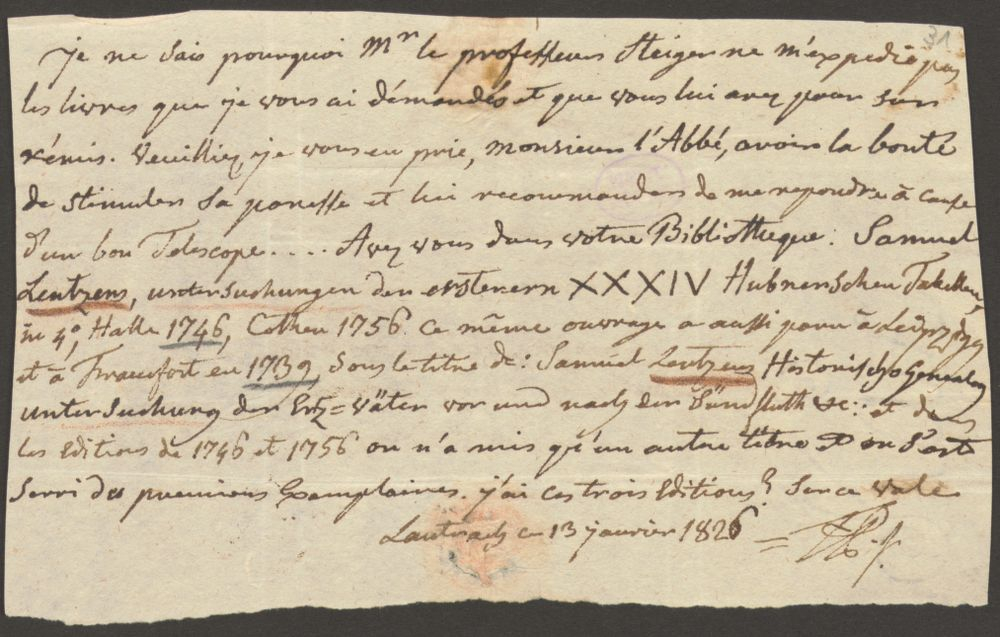 31
je ne sais pourquoi Mr le professeur Steiger ne m'expedie pas
les livres que je vous ai démandés et que vous lui avez pour sur
rémis. Veuilliez, je vous en prie, monsieur l'Abbé, avoir la bonté
de stimuler sa paresse et lui recommander de me repondre à cause
d'un bon Telescope.... Avez vous dans votre Bibliotheque: Samuel
Lentzens, untersuchungen der ersteren XXXIV Hubnerschen Tabellen,
in 4°, Halle 1746, Cöthen 1756. Ce même ouvrage a aussi paru à Leipzig
et à Francfort en 1739, sous le titre de: Samuel Lentzens Historisch Genealog
untersuchung der Ertz=väter vor und nach der Sündfluth &c: et dans
les Editions de 1746 et 1756 on n'a mis qu'un autre titre et on s'est
servi des premiers Exemplaires. j'ai ces trois Editions. Sur ce vale
Lautrach ce 13 janvier 1826 =